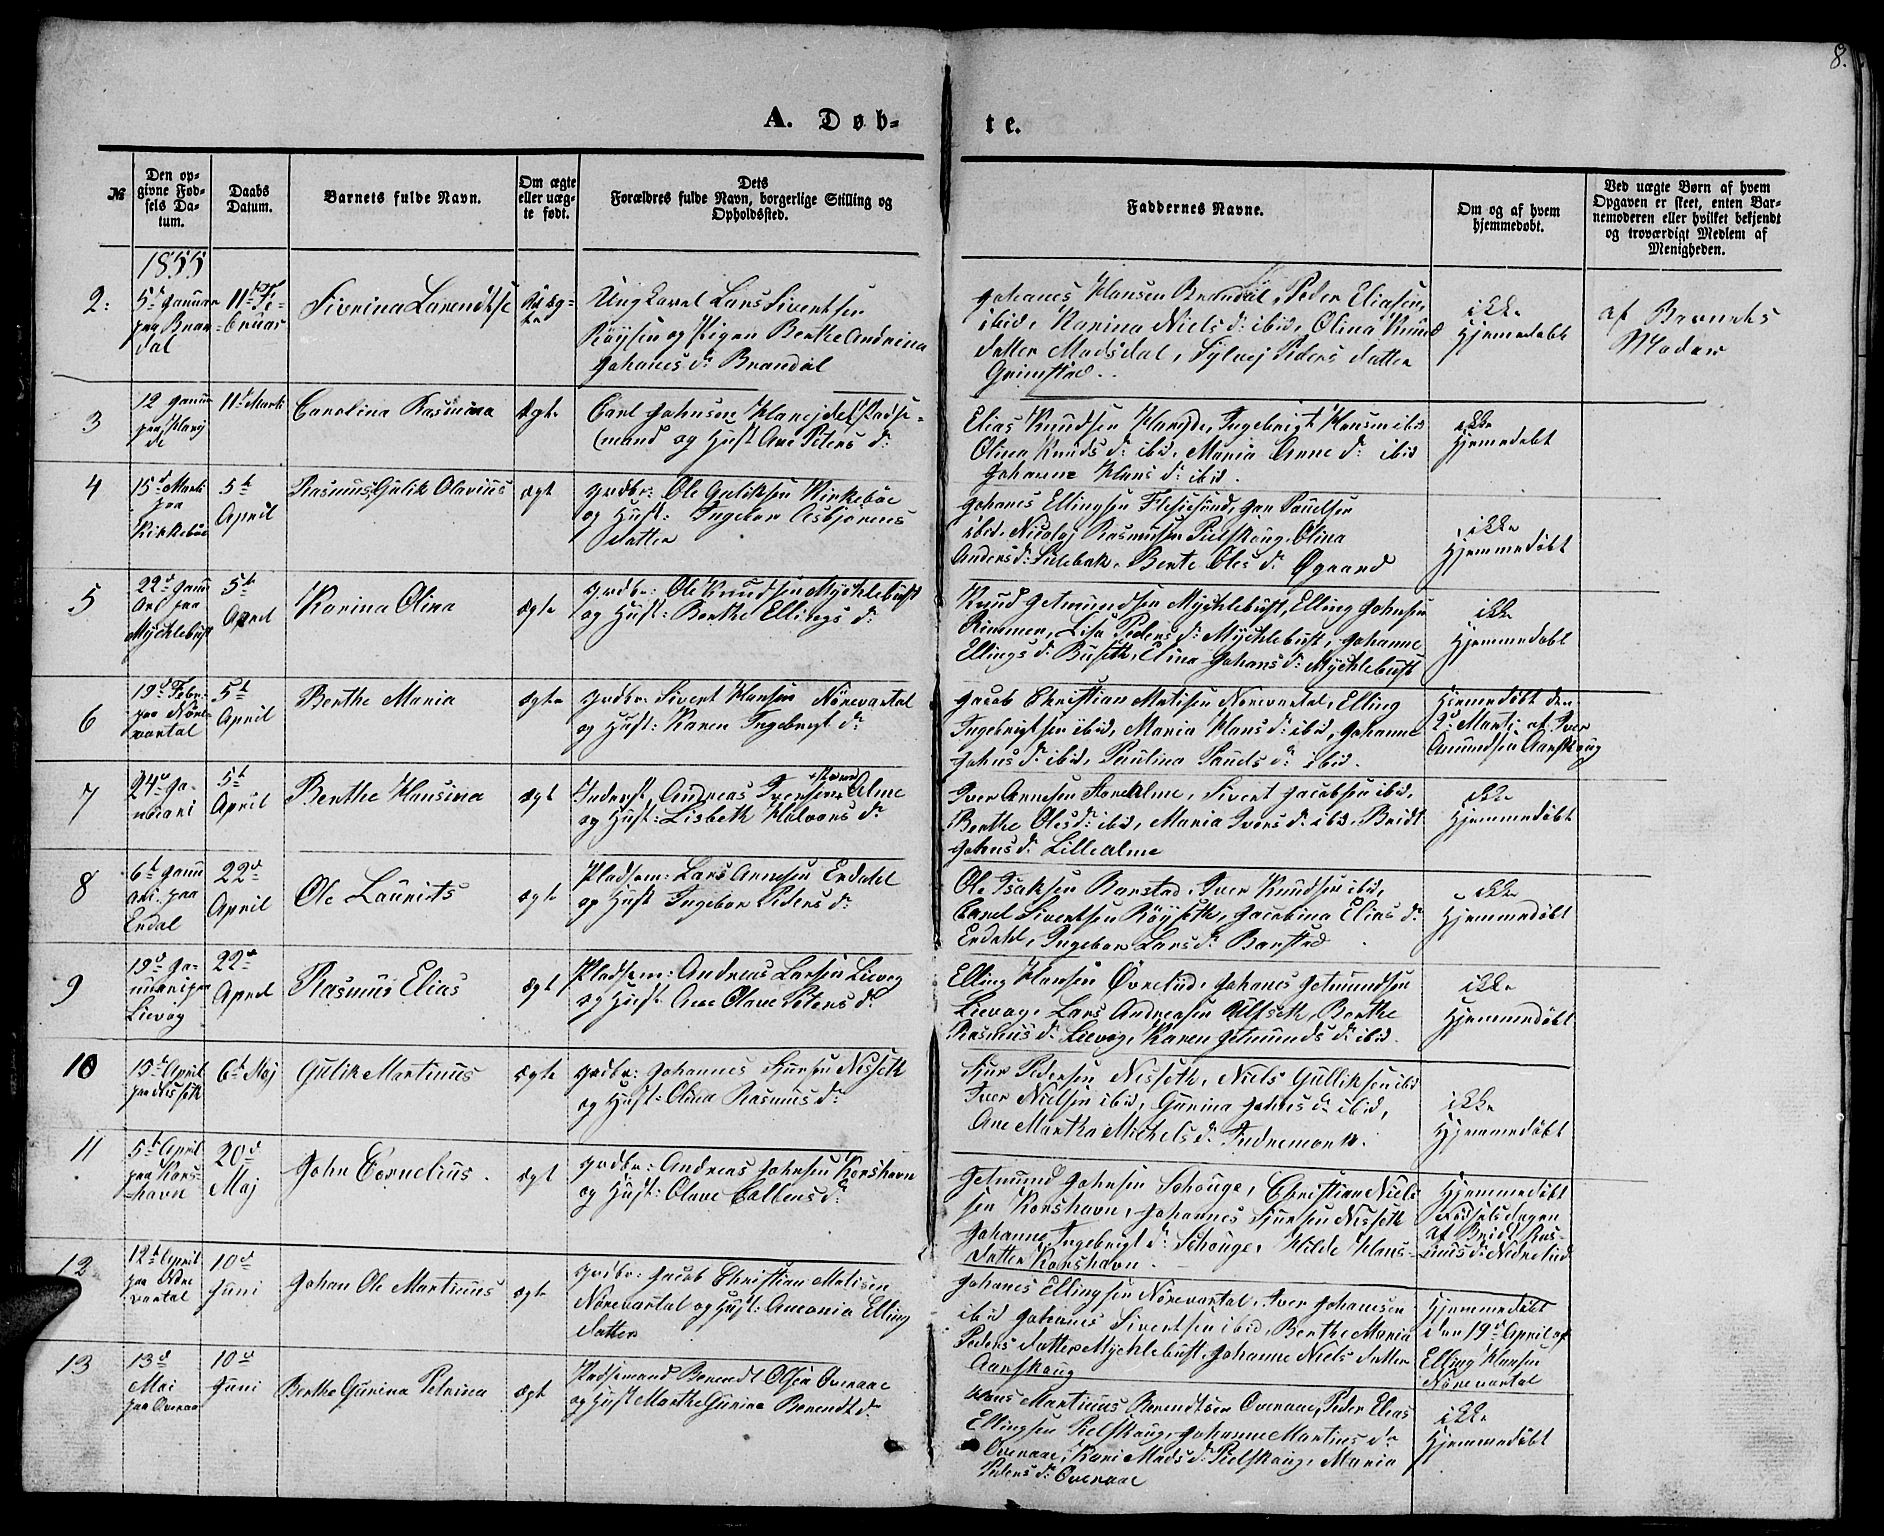 8.
A. Døb-
te.
№
Den op-
givne Fød-
sels Da-
tum.
Daabs
Datum.
Barnets fulde Navn.
Om ægte
eller uæg-
te født.
Dets
Forældres fulde Navn, borgerlige Stilling og
Opholdssted.
Faddernes Navne.
Om og af hvem
hjemmedøbt.
Ved uægte Børn af hvem
Opgaven er skeet, enten Bar-
nemoderen eller hvilket bekjendt
og troværdigt Medlem af
Menigheden.
1855
2:
5te Januar
paa Bran
dal
11te Fe-
bruar
Sivrina Larendtse
Uæg-
te
Ung Carl Lars Sivertsen
Röysen og Pigen Berthe Andrina
Johanes dr Brandal
Johanes Hansen Brandal, Peder Eliasen,
ibid, Karina Niels dr ibid, Olina Knud
datter Madsdal, Sylvej Peders datter
Grimstad.
ikke
Hjemmedøbt
af Barnets
Moder
3
12 Janu
paa Harej
de
11te Marti
Carolina Rasmina
ægte
Carl Johnsen Harejde Pladse-
mand og Hust Ane Peters dr
Elias Knudsen Harejde, Ingebrigt Hansen ibid
Olina Knuds dr ibid, Maria Anne dr ibid
Johanne Hans dr ibid.
ikke
Hjemmedøbt
4
15de Marti
paa
Kirkebøe
5te
April
Rasmus Gulik Olavius
ægt
grdbr: Ole Guliksen Kirkebøe
og Hust: Ingebor Asbjørns
datter
Johanes Ellingsen Flesiesund, Jan Paulsen
ibid, Nicolaj Rasmusen Pielskoug, Olina
Anders dr Sulebak, Berte Oles dr Øgaard
ikke
Hjemmedøbt
5
22de Janu
ari paa
Myklebust
5te
April
Karina Olina
ægte
grdbr: Ole Knudsen Myklebust
og Hust: Berthe Ellings dr
Knud Getmundsen Myklebust, Elling Johnsen
Rimmen, Lisa Peders dr Myklebust, Johanne
Ellings dr Buseth, Elina Johans dr Myklebust
ikke
Hjemmedøbt
6
19de Febr:
paa Nöre-
vartal
5te
April
Berthe Maria
ægte
grdbr: Sivert Hansen Nörevartal
og Hust: Karen Ingebrigt dr
Jacob Christian Matisen Nörevartal, Elling
Ingebrigtsen ibid, Maria Hans dr ibid, Johanne
Johns dr ibid, Paulina Pauls dr ibid.
Hjemmedøbt den
2de Martj af Iver
Amundsen Aarskoug
7
24de Ja-
nuari
5te
April
Berthe Hansina
ægt
Inderst Andreas Iversen Store Alme
og Hust: Lisbeth Halvors dr
Iver Arnesen Storalme, Sivert Jacobsen ibid,
Berthe Oles dr ibid, Maria Ivers dr ibid, Bridt
Johns dr Lillealme
ikke
Hjemmedøbt
8
6te Janu
ari paa
Erdal
22de
April
Ole Laurits
ægte
Pladsem: Lars Arnesen Erdahl
og Hust Ingebor Peders dr
Ole Isaksen Barstad, Iver Knudsen ibid,
Carel Sivertsen Röyseth, Jacobina Elias dr
Erdahl, Ingebor Lars dr Barstad
ikke
Hjemmedøbt
9
19de Ja-
nuari paa
Lievog
22de
April
Rasmus Elias
ægt
Pladsem: Andreas Larsen Lievog
og Hust Ane Olave Peters dr
Elling Hansen Øvrelid, Johanes Getmundsen
Lievag, Lars Andreasen Ulfseth, Berthe
Rasmus dr Lievog, Karen Getmunds dr ibid.
ikke
Hjemmedøbt
10
15de April
paa Nisseth
6te Maj
Gulik Martinus
ægte
grdbr: Johannes Sjursen Nisseth
og Hust: Olina Rasmus dr
Sjur Pedersen Nisseth, Niels Gulliksen ibid
Iver Nielsen ibid, Gurina Johns dr ibid,
Ane Martha Michels dr Indremork.
ikke
Hjemmedøbt
11
5te April
paa Kors-
havn
20de
Maj
John Cornelius.
ægt
grdbr: Andreas Johnsen Korshavn
og Hust: Olave Colbens dr
Getmund Johnsen Schouge, Christian Niel-
sen Korshavn, Johannes Sjursen Nisseth
Johanne Ingebrigt dr Schouge, Hilde Hans-
datter Korshavn.
Hjemmedøbt
Födselsdagen
af Bridt Ras-
mus dr Nedrelid
12
12te April
paa Nöre
vartal
10de
Juni
Johan Ole Martinus
ægte
grdbr: Jacob Christian Matisen
Nörevartal og Hust: Antonia Elling
datter
Johanes Ellingsen Nörevartal, Iver Johansen
ibid Johanes Sivertsen ibid, Berthe Maria
Peders datter Myklebust, Johanne Niels datter
Aarskoug
Hjemmedøbt
den 19de April af
Elling Hansen
Nörevartal
13
13de
Mai
paa Overaae
10de
Juni
Berthe Gurina Petrina
ægt
Pladsemand Berendt Olsen Overaae
og Hust Marthe Gurine Berendt dr
Hans Martinus Berendtsen Overaae, Peder Elias
Ellingsen Pielskoug, Johanne Martinus dr
Overaae, Kari Mads dr Pielskoug, Maria
Peders dr Overaae
ikke
Hjemmedøbt